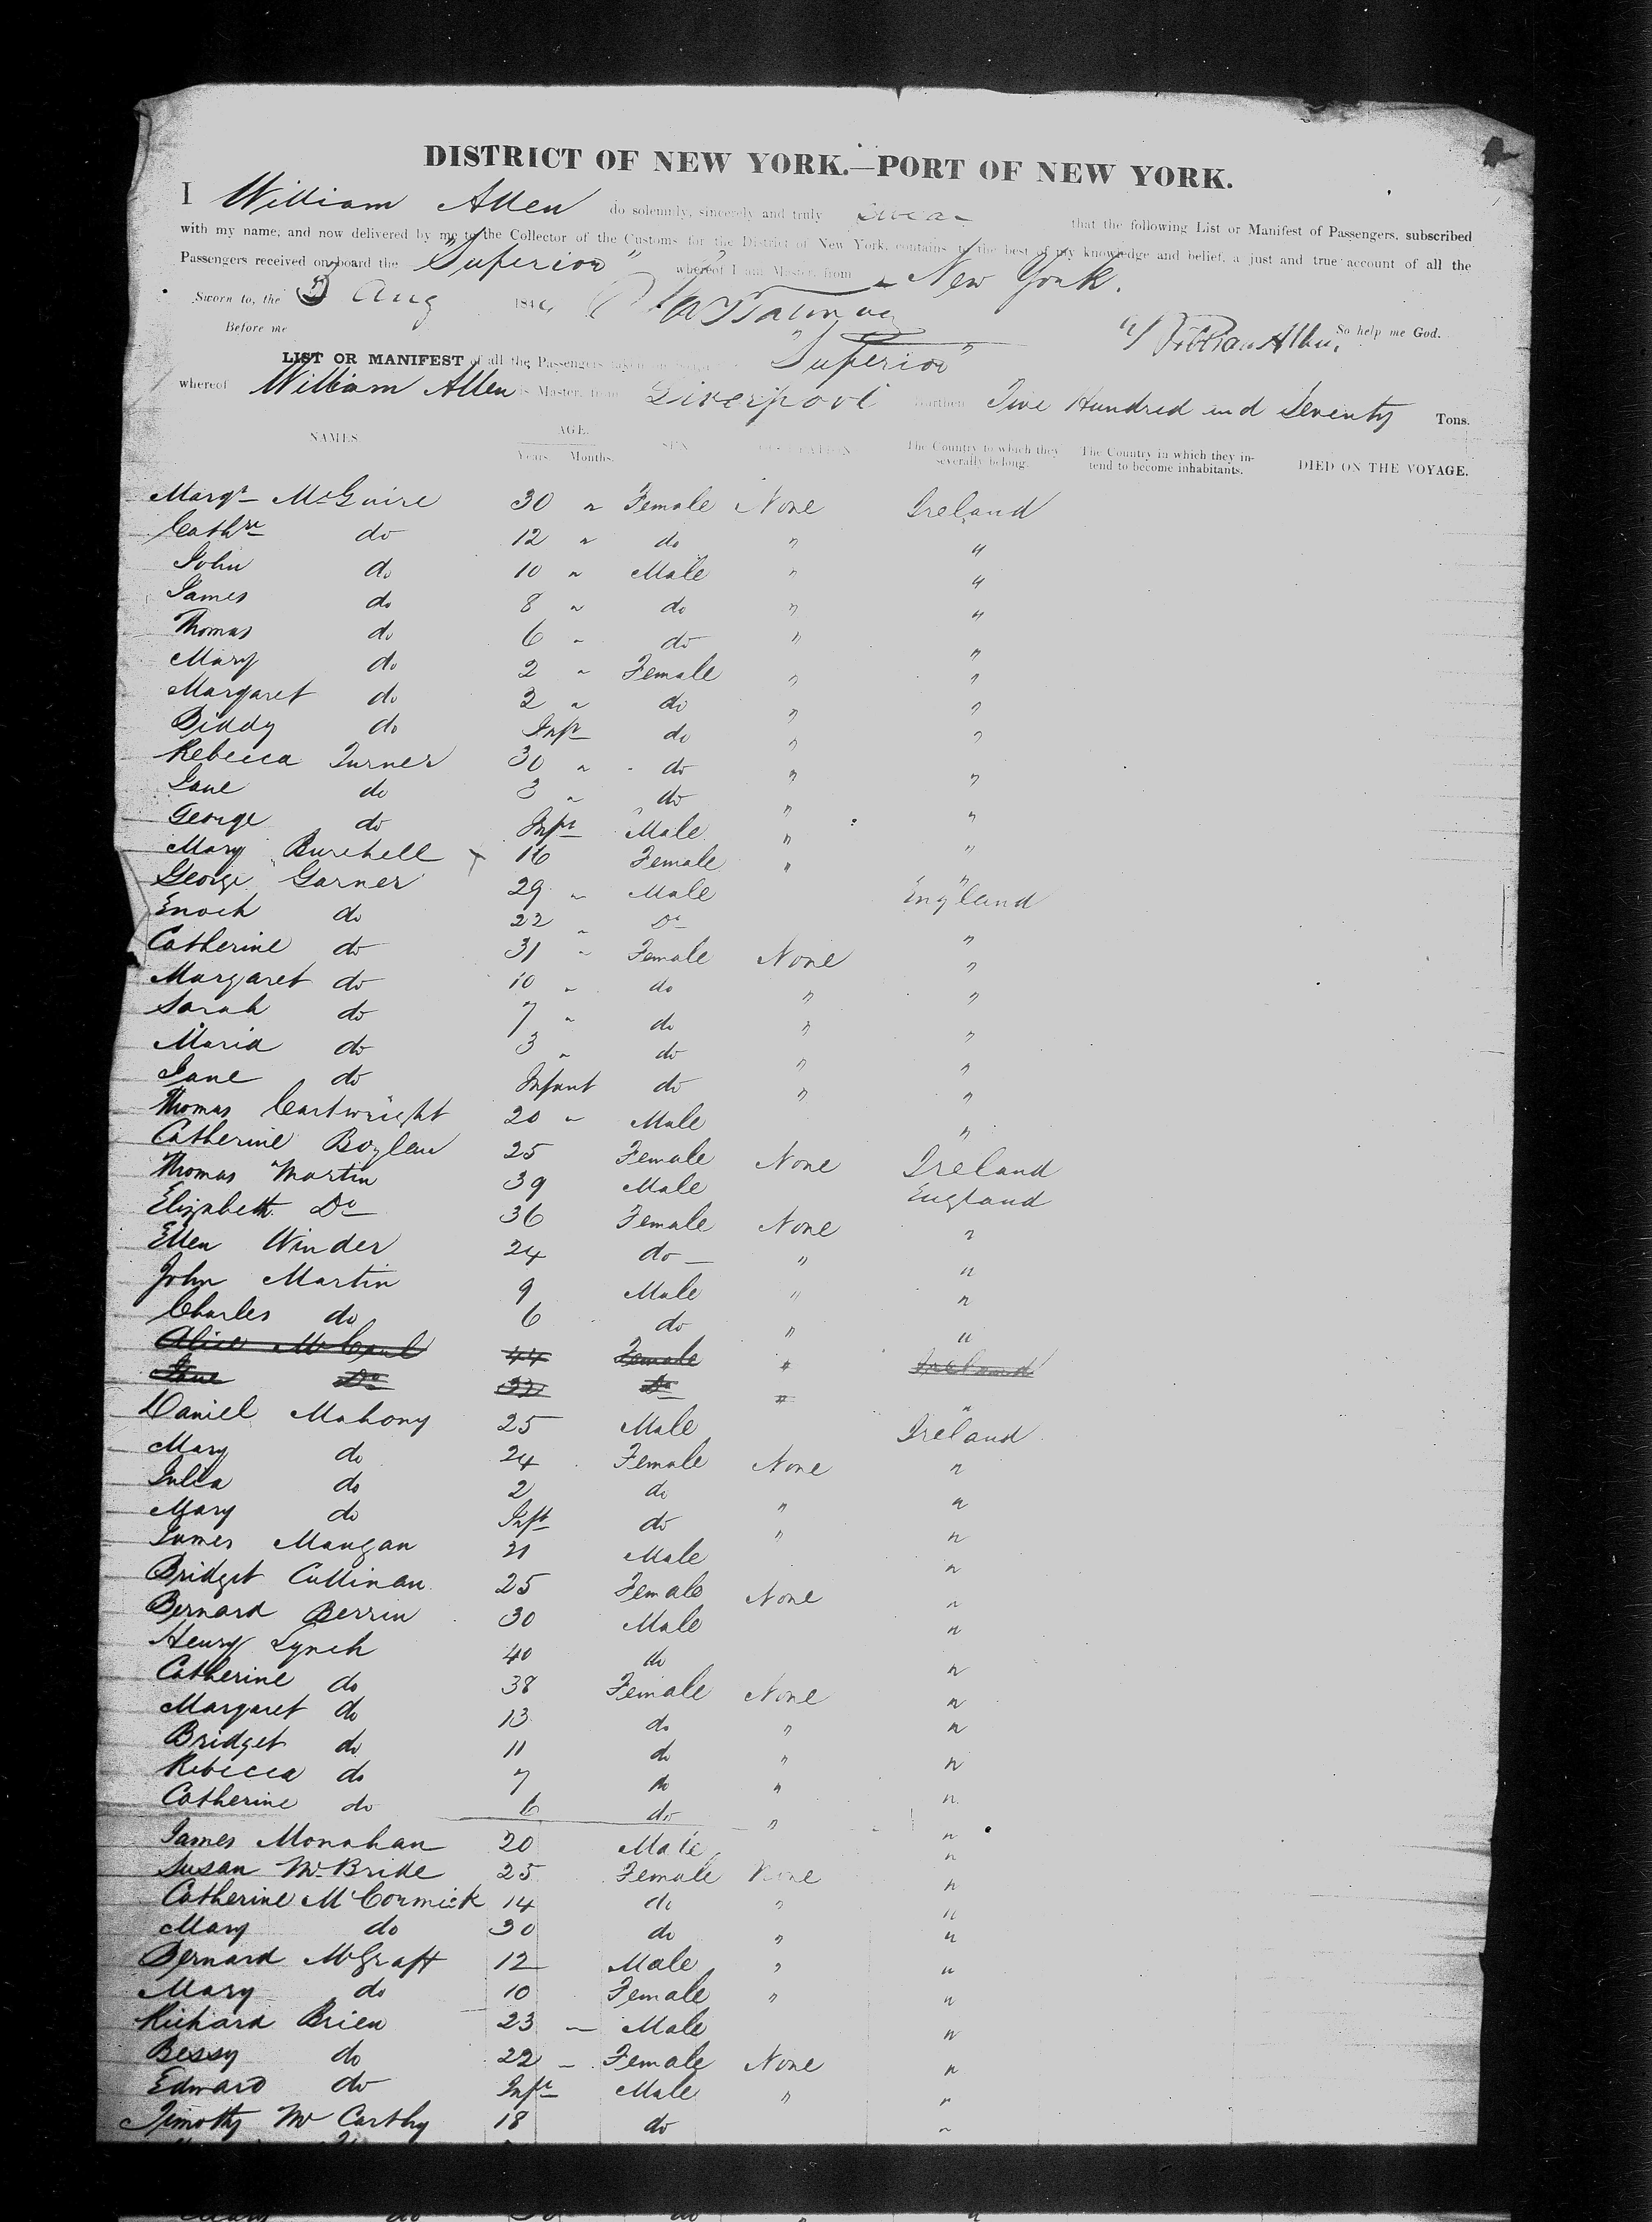 DISTRICT OF NEW YORK.—PORT OF NEW YORK.
I William Allen do solemnly, sincerely and truly swear that the following List or Manifest of Passengers, subscribed
with my name, and now delivered by me to the Collector of the Customs for the District of New York, contains to the best of my knowledge and belief, a just and true account of all the
Passengers received on board the "Superior" whereof I am Master, from New York.
Sworn to, the 5 Aug 184
Before me William Allen So help me God.
LIST OR MANIFEST of all the Passengers "Superior"
whereof William Allen is Master, from Liverpool burthen Five Hundred and Seventy Tons.
NAMES AGE. Years. Months. SEX OCCUPATION The Country to which they severally belong. The Country in which they intend to become inhabitants. DIED ON THE VOYAGE.
Margt McGuire 30 " Female None Ireland
Cathne do 12 " do " "
John do 10 " Male " "
James do 8 " do " "
Thomas do 6 " do " "
Mary do 2 " Female " "
Margaret do 2 " do " "
Biddy do Inft do " "
Rebecca Turner 30 " do " "
Jane do 3 " do " "
George do Inft Male " "
Mary Burchell 16 Female " "
George Garner 29 " Male England
Enoch do 22 " Do "
Catherine do 31 " Female None "
Margaret do 10 " do " "
Sarah do 7 " do " "
Maria do 3 " do " "
Jane do Infant do " "
Thomas Cartwright 20 " Male "
Catherine Boylan 25 Female None Ireland
Thomas Martin 39 Male England
Elizabeth Do 36 Female None "
Ellen Winder 24 do " "
John Martin 9 Male " "
Charles do 6 do " "
Alice 44 Female " Ireland
Jane Do Do " "
Daniel Mahony 25 Male Ireland
Mary do 24 Female None "
Julia do 2 do " "
Mary do Inft do " "
James Mangan 21 Male "
Bridget Cullinan 25 Female None "
Bernard Berrin 30 Male "
Henry Lynch 40 do "
Catherine do 38 Female None "
Margaret do 13 do " "
Bridget do 11 do " "
Rebecca do 7 do " "
Catherine do 6 do " "
James Monahan 20 Male "
Susan McBride 25 Female None "
Catherine McCormick 14 do " "
Mary do 30 do " "
Bernard McGraft 12 Male " "
Mary do 10 Female " "
Richard Brien 23 Male "
Bessy do 22 Female None "
Edward do Inft Male " "
Timothy McCarthy 18 do "